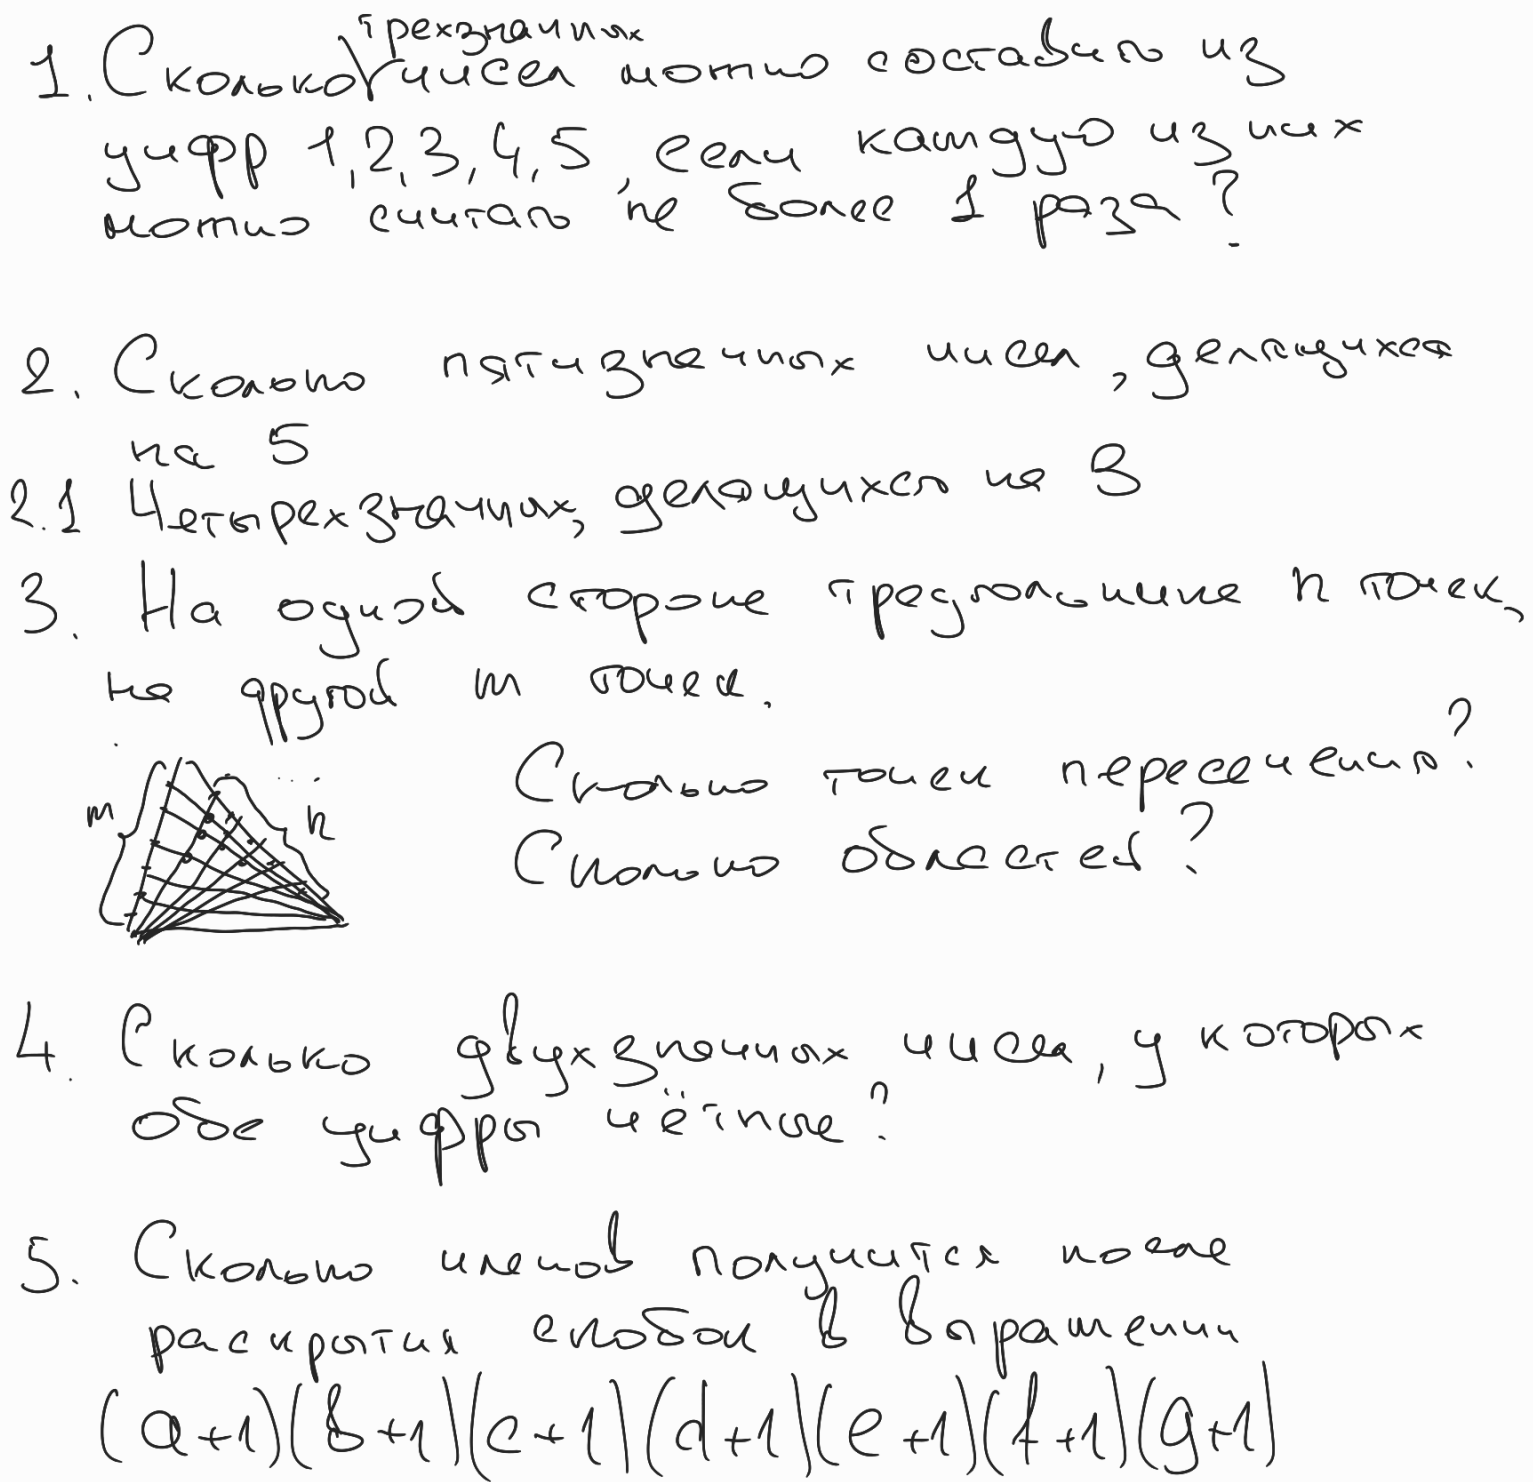 1. Сколько трехзначных чисел можно составить из
цифр 1, 2, 3, 4, 5, если каждую из них
можно считать не более 1 раза?
2. Сколько пятизначных чисел, делящихся
на 5
2.1 Четырехзначных, делящихся на 3
3. На одной стороне треугольника n точек,
на другой m точек.
m
n
Сколько точек пересечения?
Сколько областей?
4. Сколько двухзначных чисел, у которых
обе цифры чётные?
5. Сколько членов получится после
раскрытия скобок в выражении
(a+1)(b+1)(c+1)(d+1)(e+1)(f+1)(g+1)